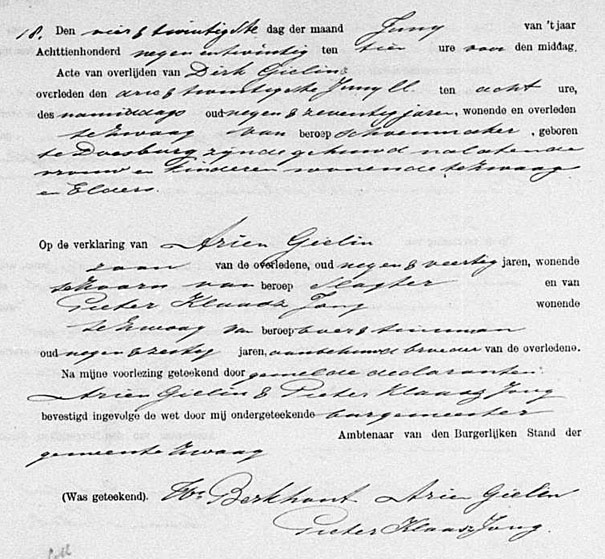 18. Den vier & twintigste dag der maand Juny van 't jaar
Achttienhonderd negen en twintig ten tien ure voor den middag.
Acte van overlijden van Dirk Gielin
overleden den drie & twintigste Juny ll. ten acht ure,
des namiddags oud negen & zeventig jaren, wonende en overleden
te Zwaag van beroep schoenmaker, geboren
te Doesburg zijnde gehuwd nalatende
vrouw en kinderen wonende te Zwaag
en Elders.
Op de verklaring van Arien Gielin
zoon van de overledene, oud negen & veertig jaren, wonende
te Hoorn van beroep Slagter en van
Pieter Klaasz Jong wonende
te Zwaag van beroep boer & tuinman
oud negen & zestig jaren, aanbehuwd broeder van de overledene.
Na mijne voorlezing geteekend door gemelde declaranten
Arien Gielin & Pieter Klaasz Jong
bevestigd ingevolge de wet door mij ondergeteekende burgemeester
Ambtenaar van den Burgerlijken Stand der
gemeente Zwaag
(Was geteekend). Berkhout Arien Gielin
Pieter Klaasz Jong.